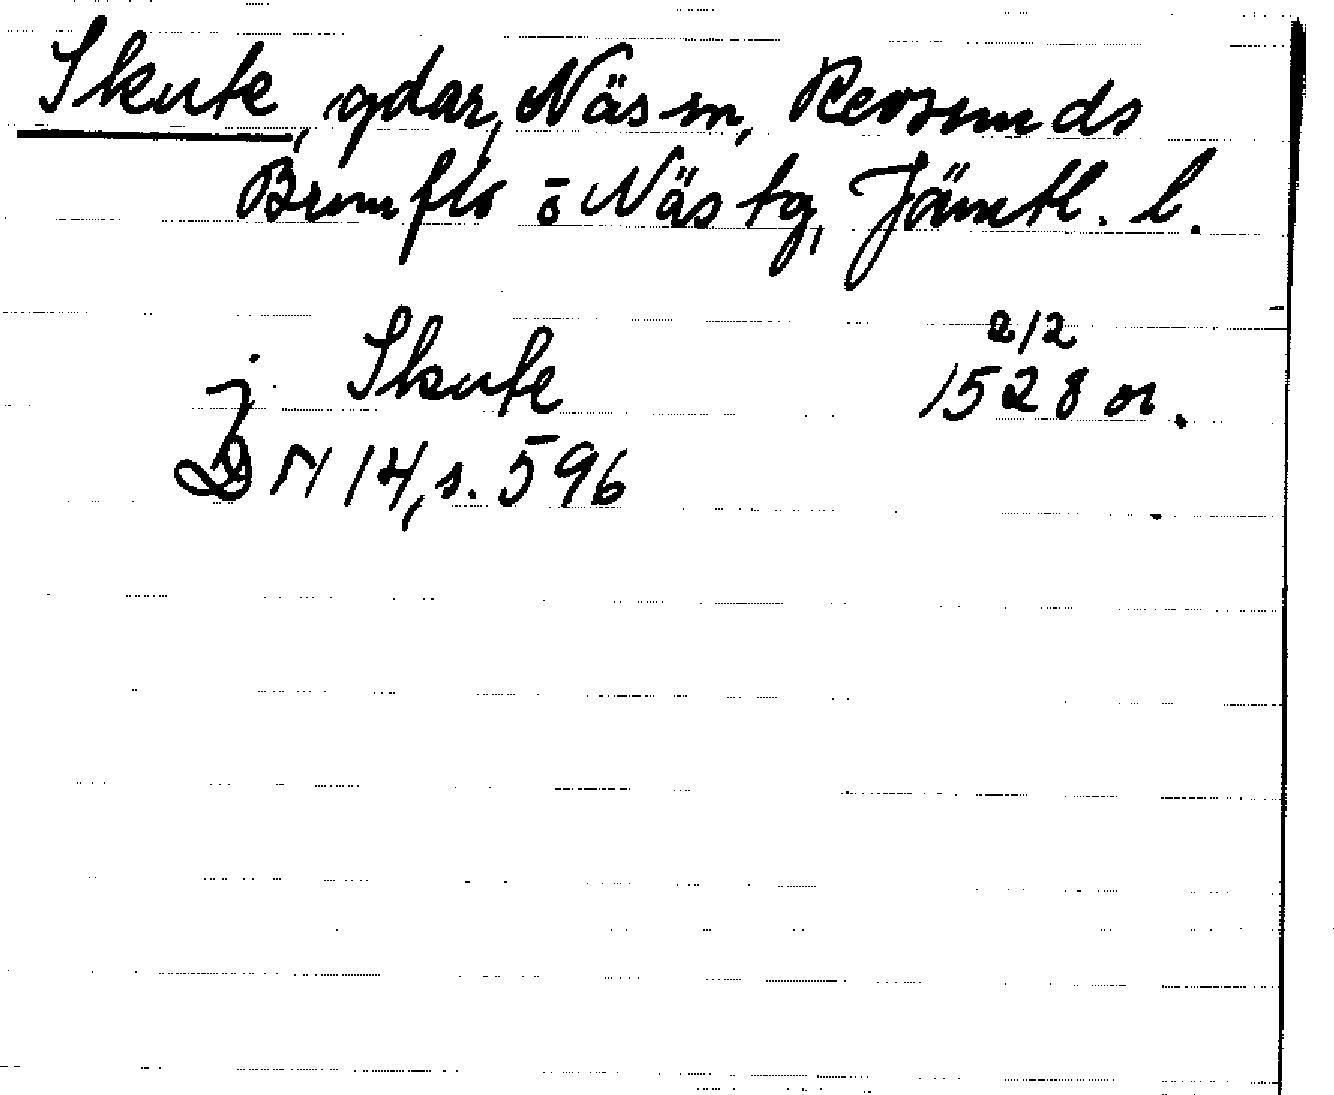 Skute, gdar, Näs sn, Revsunds
Brunflo o Näs tg, Jämtl. l.
2/2
j Skute 1528 or.
DN 14, s. 596